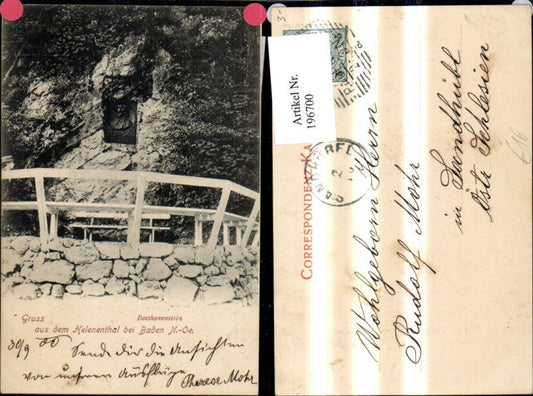 Gruss
Beethovenstein
aus dem Helenenthal bei Baden N.-Oe.
30/9 00
Sende Dir die Ansichten
von unseren Ausflüge
Therese Mohr
Artikel Nr.
196700
CORRESPONDENZ-KA
Wohlgeborn Herrn
Rudolf Mohr
in Sandhübl
Östr Schlesien
€16